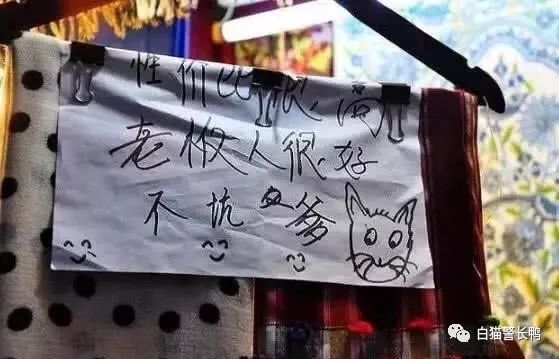 性价比很高
老板人很好
不坑爹
白猫警长鸭